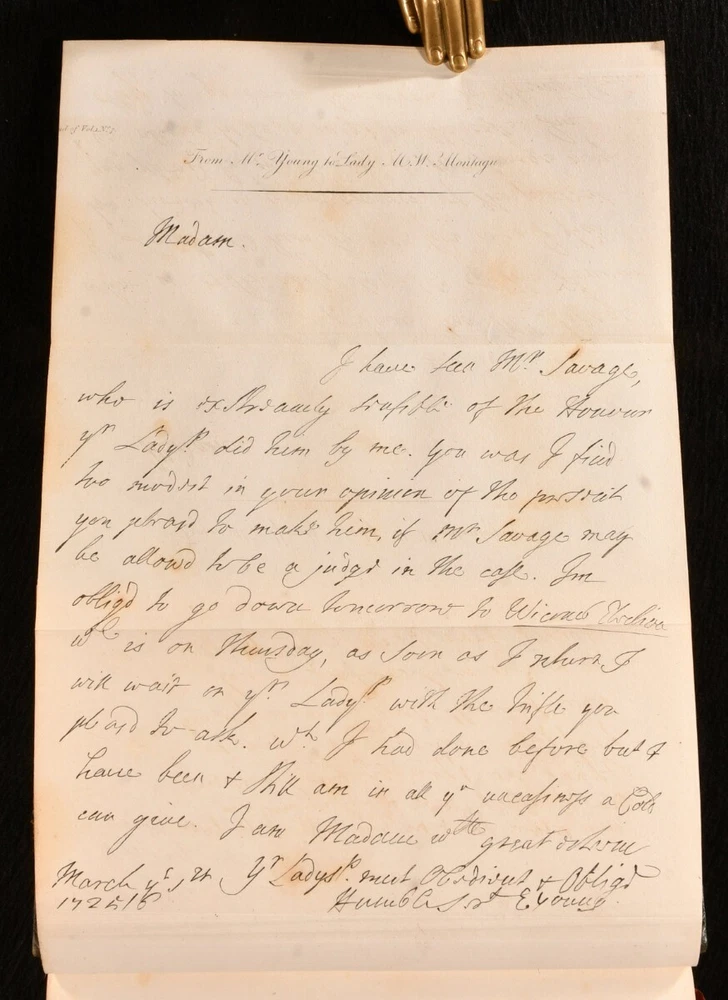 From Mr. Young to Lady M.W. Montagu
Madam.
I have seen Mr. Savage,
who is extreamly sensible of the Honour
yr Ladysp. did him by me. You was I find
too modest in your opinion of the present
you pleasd to make him, if Mr Savage may
be allowd to be a judge in the case. Im
obligd to go down tomorrow to
wch is on Thursday, as soon as I return I
will wait on yr Ladysp. with the trifle you
pleasd to ask. wch. I had done before but I
have been & still am in all ye uneasiness a Cold
can give. I am Madam wth great esteem
March ye 1st Yr Ladysp. most Obedient & Obligd
1725/6 Humble Servt E Young.